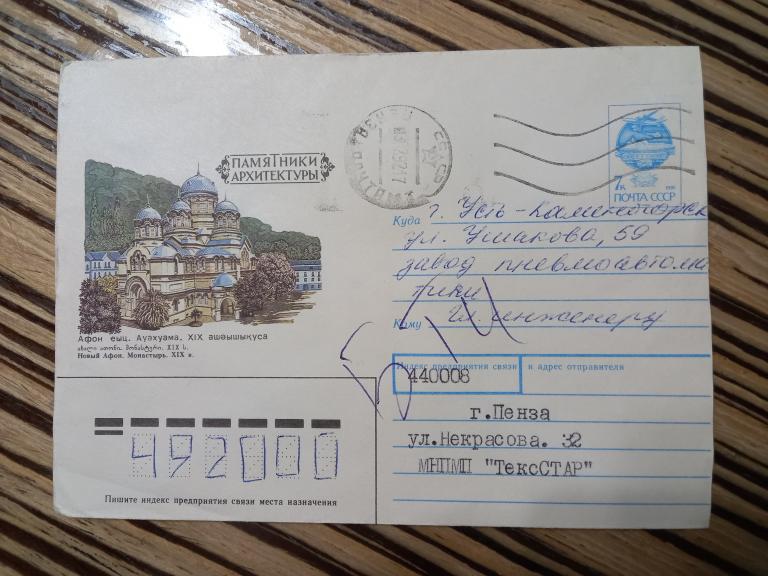 ПАМЯТНИКИ
АРХИТЕКТУРЫ
7к
ПОЧТА СССР
Куда г. Усть-Каменогорск
ул. Ушакова, 59
завод пневмоавтома
тики
Кому Гл. инженеру
Афон ҿыц. Ауаҳуама. XIX ашәышықәса
ახალი ათონი. მონასტერი. XIX ს.
Новый Афон. Монастырь. XIX в.
Индекс предприятия связи и адрес отправителя
440008
г.Пенза
ул.Некрасова. 32
МНПМП "ТексСТАР"
492000
Пишите индекс предприятия связи места назначения